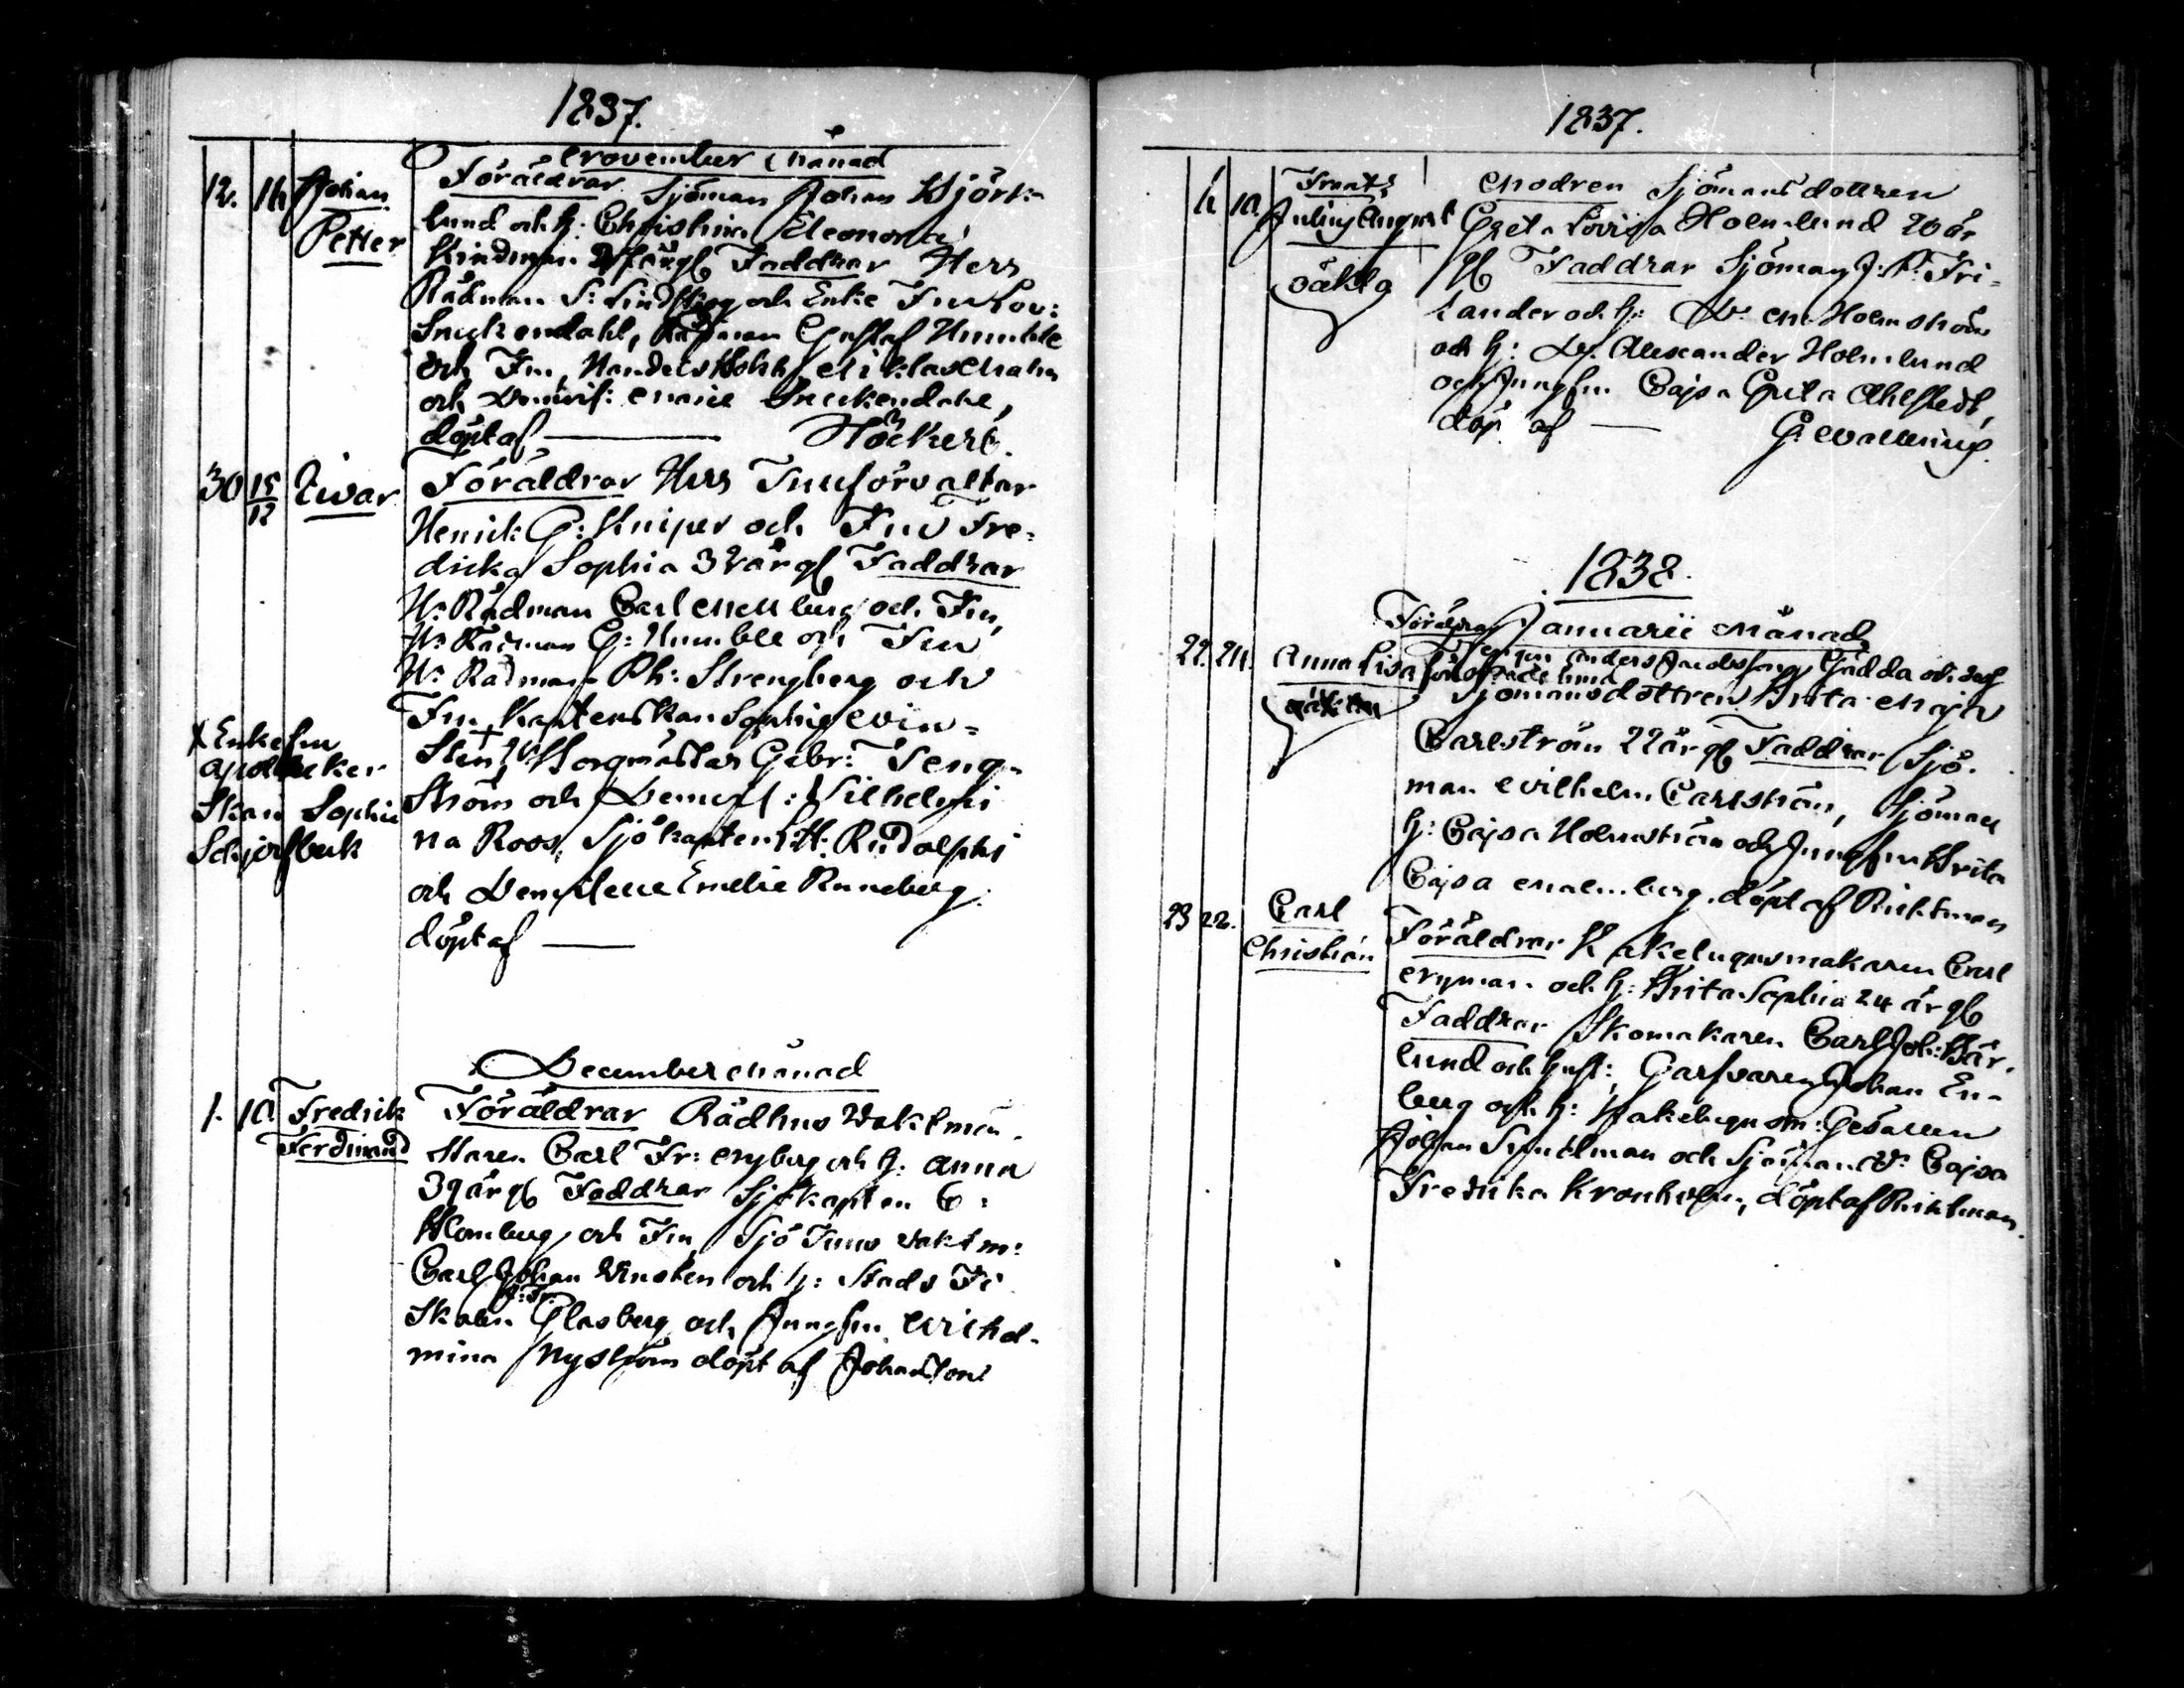 1837.
November Månad
12. 14 Johan Petter
Föräldrar Sjöman Johan Björk-
lund och h: Christina Eleonora
Lindman årg Faddrar Herr
Rådman S: Lindberg och Enke Fru Lov:
Snickendahl, Rådman Gustaf Humble
och Fru, Handels Bokh Niklas Malm
och Demois: Marie Snickendahl,
döpt af — Höckert.
30 15/12 Ivar
Föräldrar Herr Tullförvaltar
Henrik G: Kniper och Fru Fre-
dicka Sophia 32 årg Faddrar
Hr Rådman Carl Mellberg och Fru,
Hr Rådman G: Humble och Fru
Hr Rådman Ph: Strengberg och
Fru Kaptenskan Sophie Win-
sten, + Borgmästar Gabr: Teng-
ström och Demois: Wilhelmi
na Roos, Sjökapten H: Rudolphi
och Demoiselle Emelie Runeberg.
döpt af —
x Enkefru
apothecker
skan Sophie
Schjerfbeck
December Månad
1. 10. Fredrik Ferdinand
Föräldrar Rådhus Waktmä-
staren Carl Fr: Nyberg och h: Anna
39 årg Faddrar Sjökapten C:
Blomberg och Fru, Sjö Tulls vaktm:
Carl Johan Winsten och h: Stads Fi
skalen J: Fr: Glasberg och Jungfru Wilhel-
mina Nyström döpt af Johansson
1837.
6 10. Frants Julius August
oäkta
Modren Sjömansdottren
Greta Lovisa Holmlund 26 år
g Faddrar Sjöman J: P: Fri-
lander och h: Dr: M: Holmström
och h: Dr. Alexander Holmlund
och Jungfru Cajsa Greta Ahlstedt,
döp af — G: Walleng.
1838.
Januarii Månad
22. 24. Anna Lisa
oäkta
Föräldrar Anders Andersson Gädda och dess
Sjömansdottren Brita Maja
Carlström 22 årg Faddrar Sjö-
man Wilhelm Carlström, Sjöman
h: Cajsa Holmström och Jungfru Brita
Cajsa Malmberg. döpt af Ricktman
23 22. Carl Christian
Föräldrar Kakelugnsmakaren Carl
Nyman och h: Brita Sophia 24 årg
Faddrar Skomakaren Carl Joh: Bär-
lund och hust:, Garfvaren Johan En-
berg och h: Kakelugnsm: Gesällen
Johan Sundman och Sjöman D: Cajsa
Fredrika Kronholm, döpt af Ricktman.